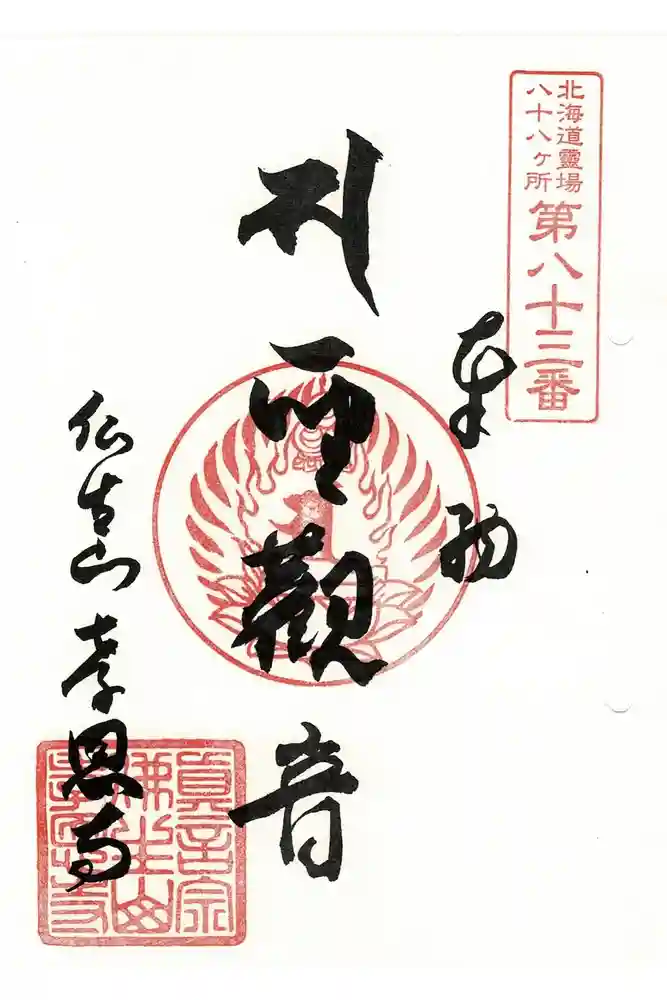 北海道靈場
八十八ヶ所
第八十三番
奉納
聖觀音
仏吉山 孝恩寺
眞言宗
佛吉山
孝恩寺